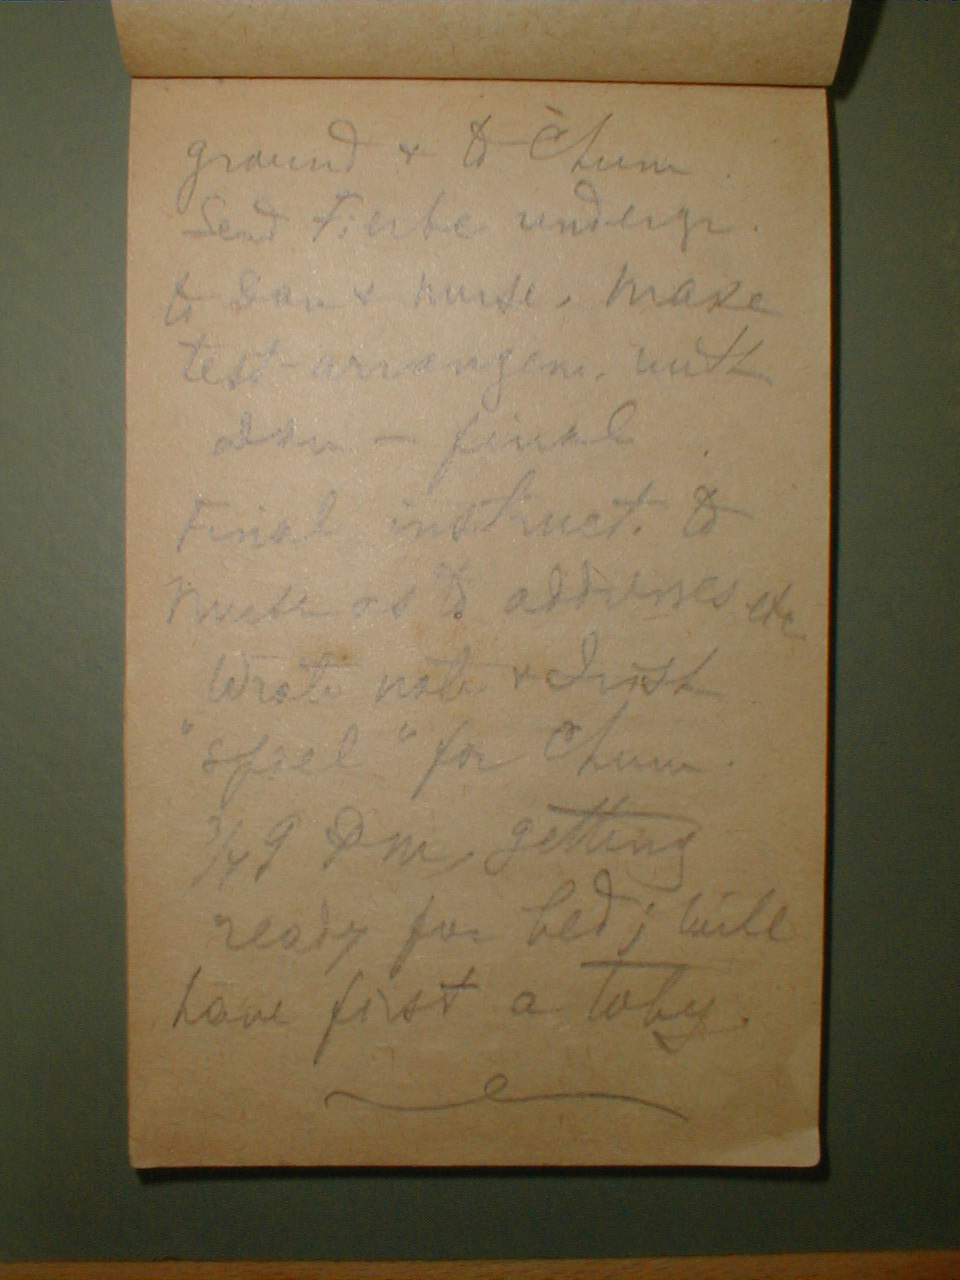 ground & to Chum
Send Fierbe undergr.
to Dan & nurse. Make
test-arrangem. with
Dan — final
Final instruct. to
Nurse as to addresses etc
Wrote note & Irish
"spiel" for Chum.
3/4 9 Pm, getting
ready for bed; will
have first a toby.